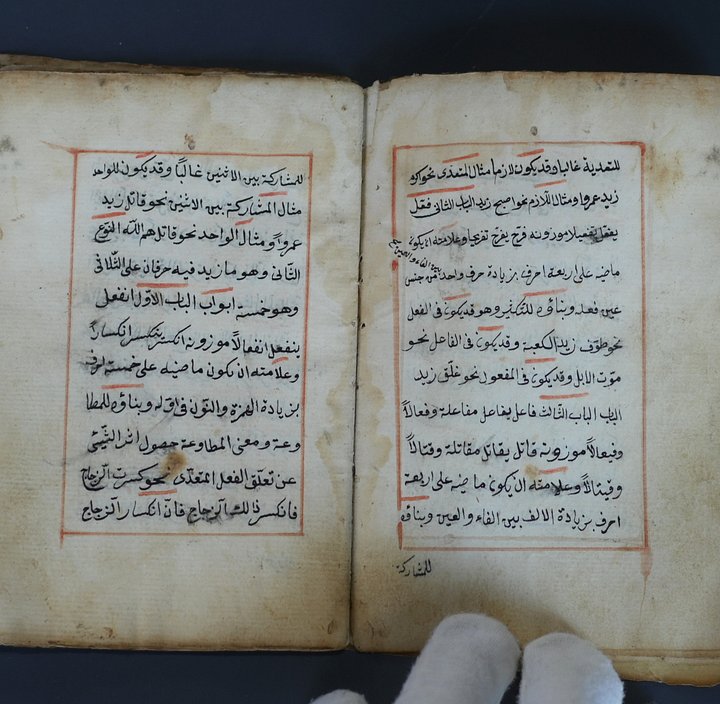 للتعدية غالبا وقد يكون لازما مثال المتعدى نحو اكرم
زيد عمروا ومثال اللازم نحو اصبح زيد الباب الثانى فعّل
يفعّل تفعيلا موزونه فرّح يفرّح تفريحا وعلامته ان يكون
ماضيه على اربعة احرف بزيادة حرف واحد من جنس
بين الفاء والعين
عين فعله وبناؤه للتكثير وهو قد يكون فى الفعل
نحو طوّف زيد الكعبة وقد يكون فى الفاعل نحو
موّت الابل وقد يكون فى المفعول نحو غلّق زيد
الباب الباب الثّالث فاعل يفاعل مفاعلة وفعالاً
وفيعالاً موزونه قاتل يقاتل مقاتلة وقتالاً
وقيتالاً وعلامته ان يكون ماضيه على اربعة
احرف بزيادة الالف بين الفاء والعين وبناؤه
للمشاركة
للمشاركة بين الاثنين غالباً وقد يكون للواحد
مثال المشاركة بين الاثنين نحو قاتل زيد
عمرواً ومثال الواحد نحو قاتلهم الله النّوع
الثّانى وهو ما زيد فيه حرفان على الثّلاثى
وهو خمسة ابواب الباب الاوّل انفعل
ينفعل انفعالاً موزونه انكسر ينكسر انكساراً
وعلامته ان يكون ماضيه على خمسة احرف
بزيادة الهمزة والنّون فى اوّله وبناؤه للمطا
وعة ومعنى المطاوعة حصول اثر الشّيئ
عن تعلّق الفعل المتعدّى نحو كسرت الزّجاج
فانكسر ذالك الزّجاج فانّ انكسار الزّجاج